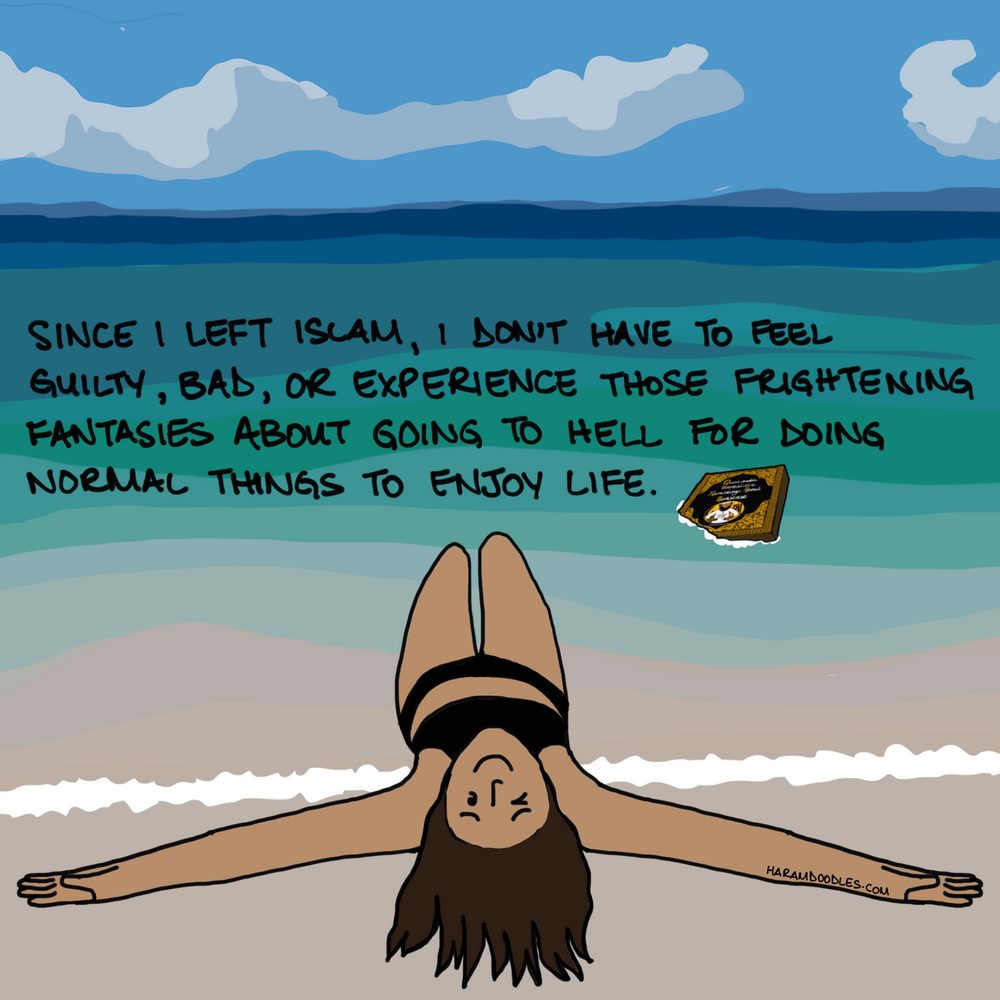 SINCE I LEFT ISLAM, I DON'T HAVE TO FEEL
GUILTY, BAD, OR EXPERIENCE THOSE FRIGHTENING
FANTASIES ABOUT GOING TO HELL FOR DOING
NORMAL THINGS TO ENJOY LIFE.
HARAMDOODLES.COM